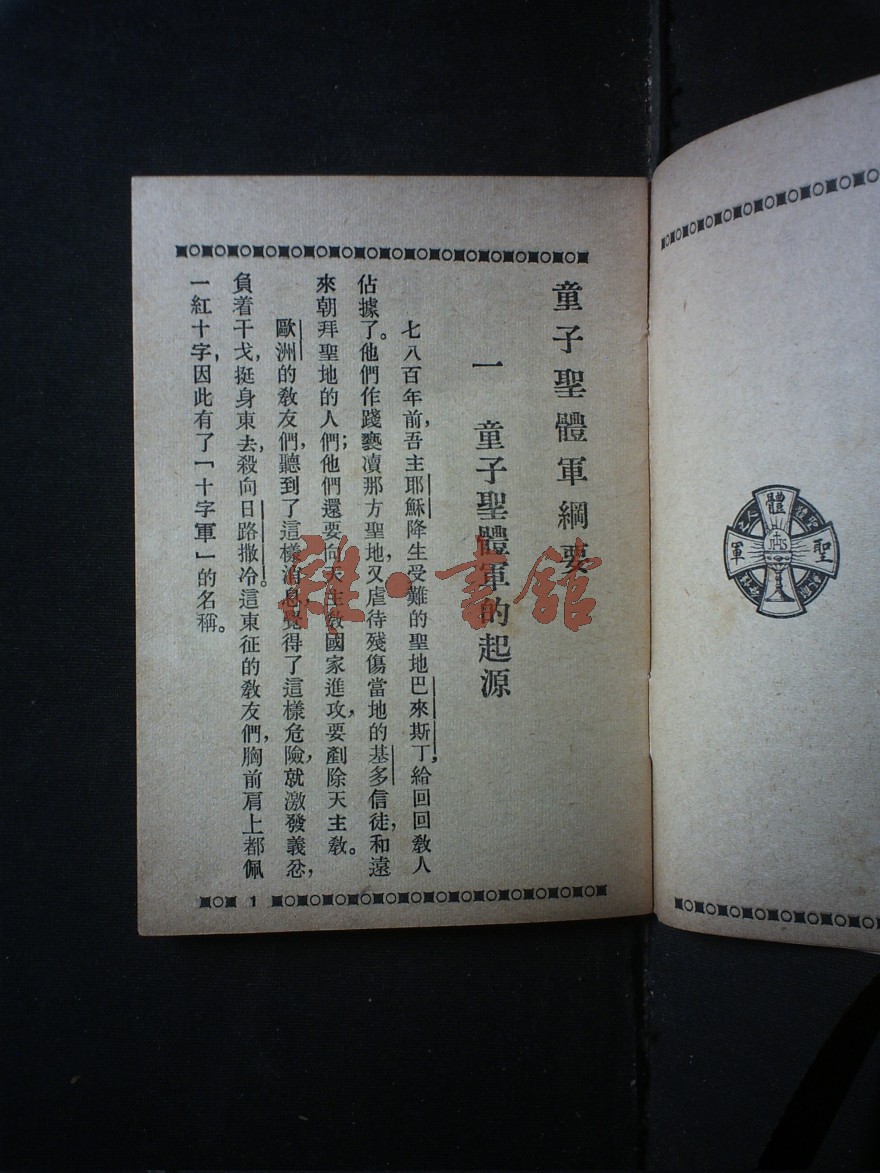 童子聖體軍綱要
一 童子聖體軍的起源
七八百年前，吾主耶穌降生受難的聖地巴來斯丁，給回回教人
佔據了。他們作踐褻瀆那方聖地，又虐待殘傷當地的基多信徒，和遠
來朝拜聖地的人們；他們還要向天主教國家進攻，要剷除天主教。
歐洲的教友們，聽到了這樣消息，覺得了這樣危險，就激發義忿，
負着干戈，挺身東去，殺向日路撒冷。這東征的教友們，胸前肩上都佩
一紅十字，因此有了「十字軍」的名稱。
1
體
軍 聖
IHS
雜·書館